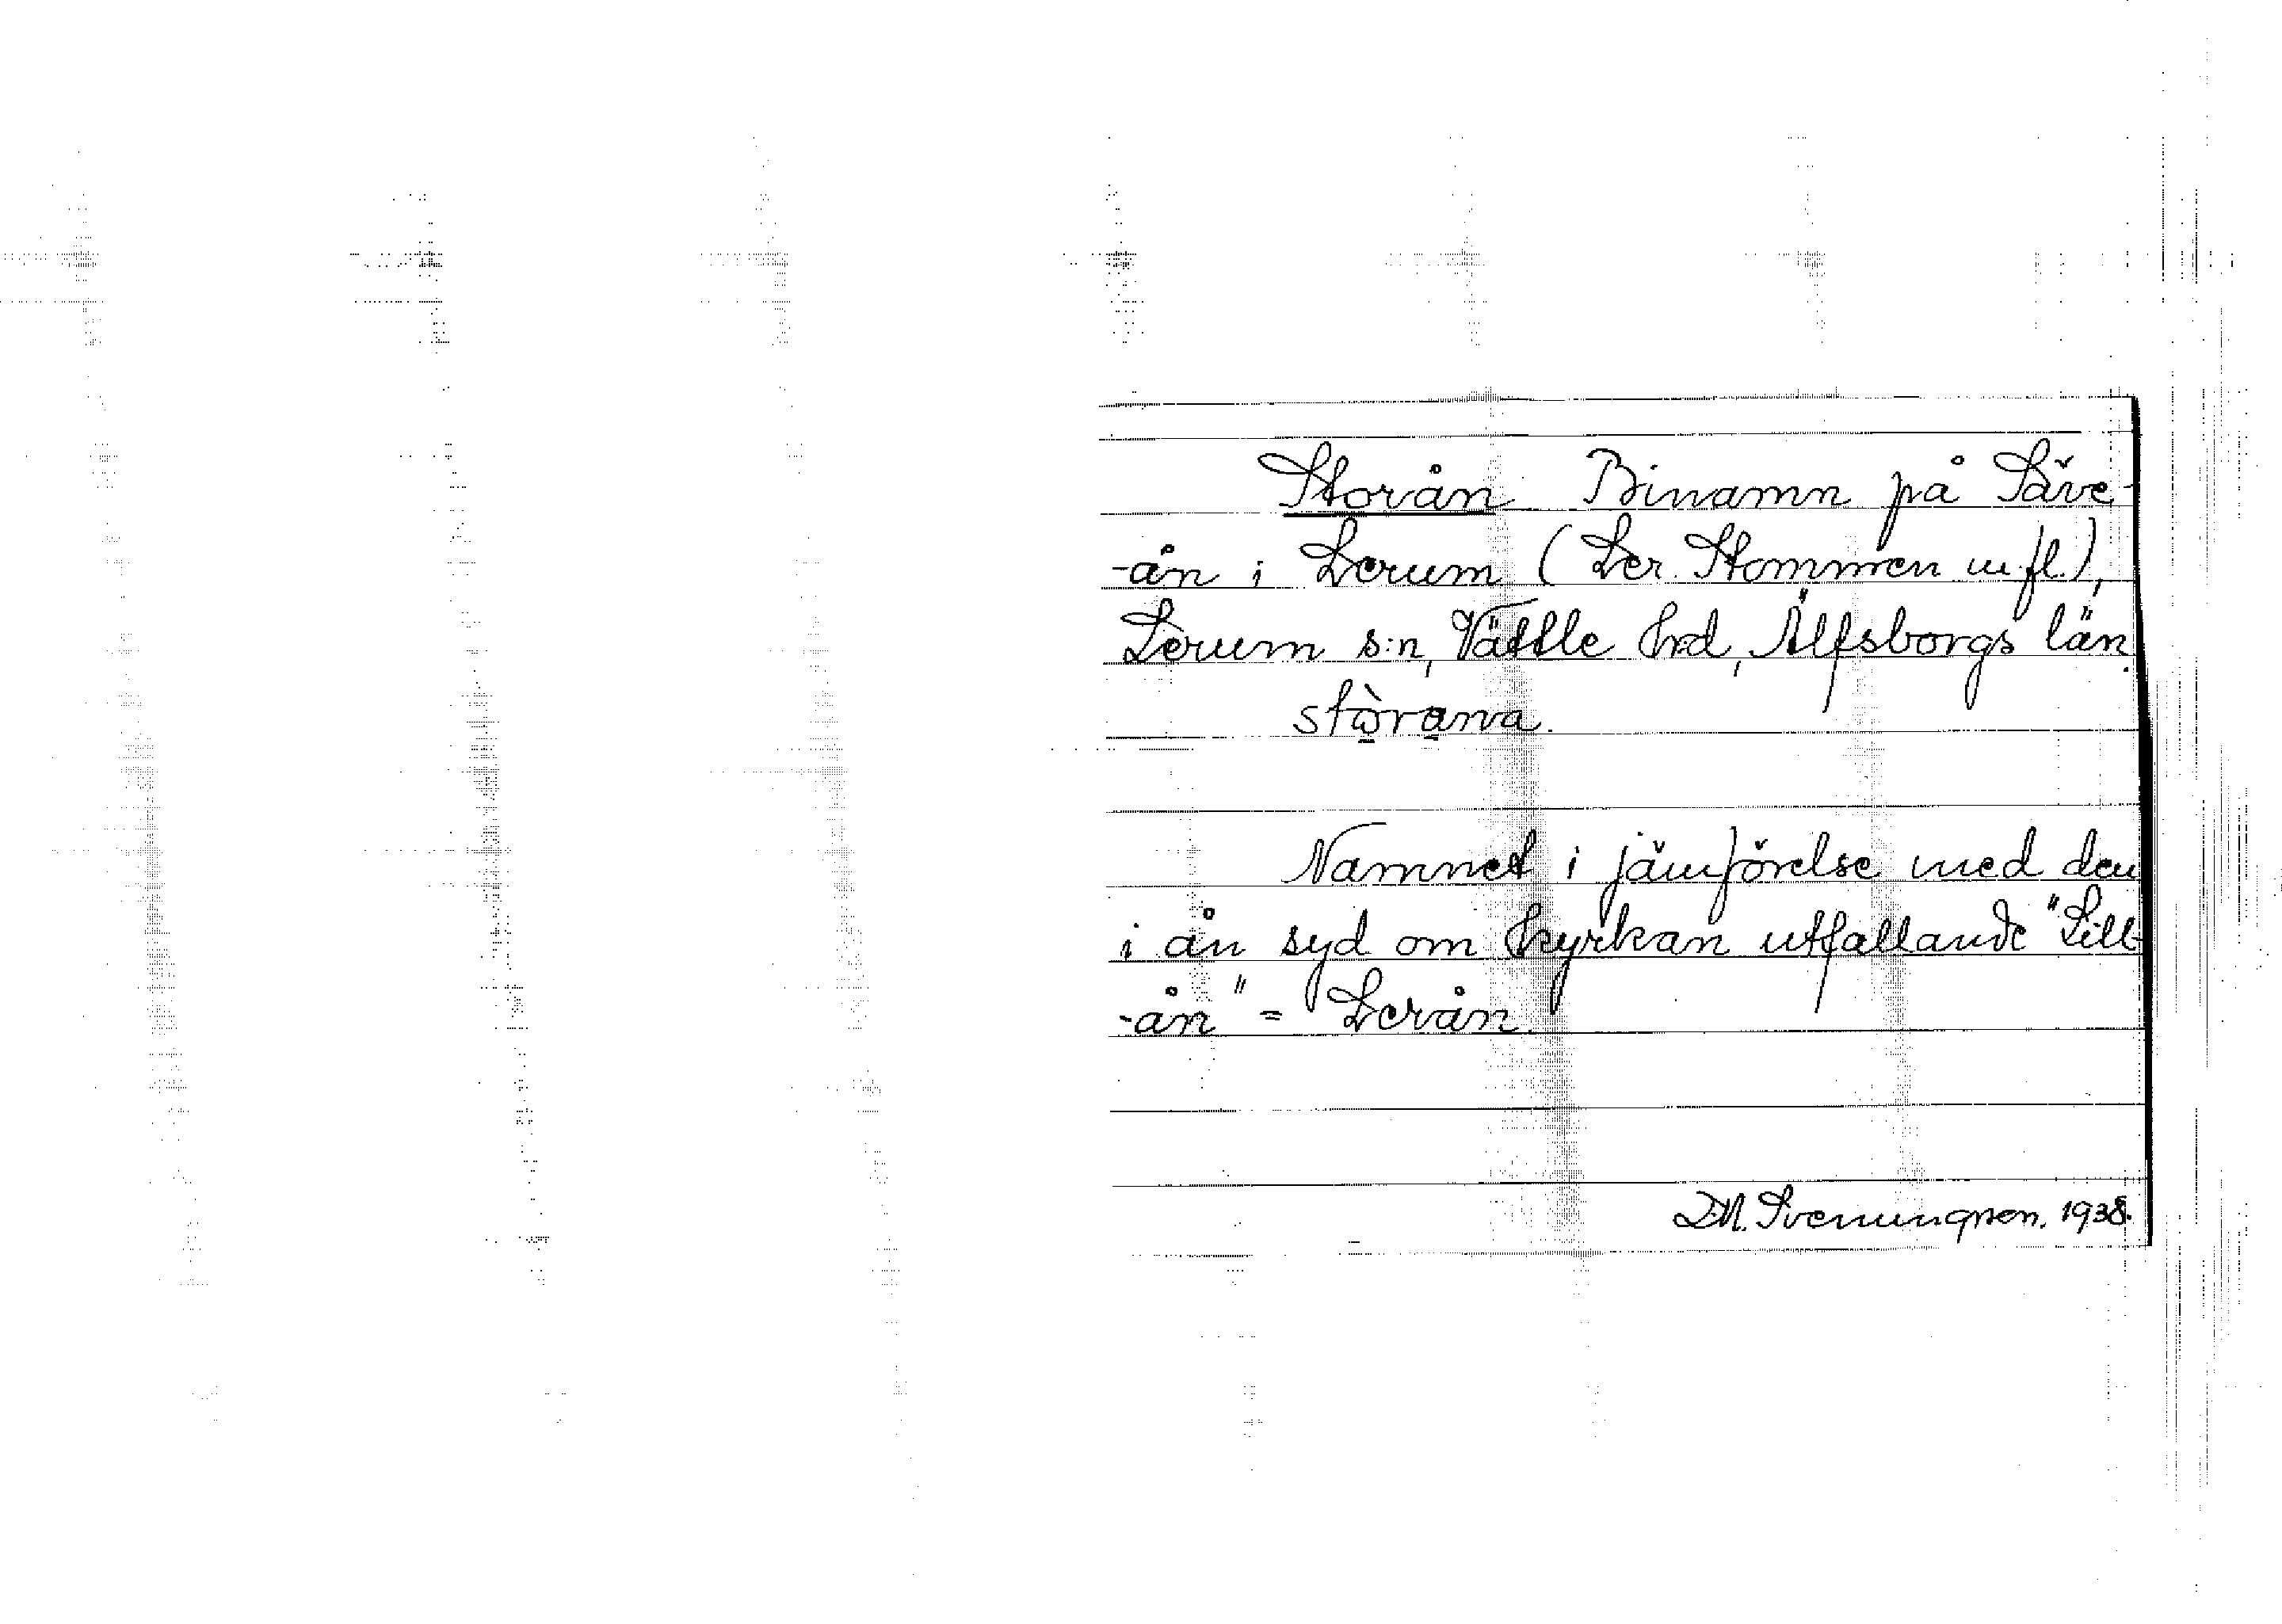 Storån Binamn på Säve-
-ån i Lerum (Ler. Stommen m fl.),
Lerum s:n, Vättle hrd, Älfsborgs län.
stòrana.
Namnet i jämförelse med den
i ån syd om kyrkan utfallande "Lill-
-ån" = Lerån.
D.M. Svenungsson. 1938.